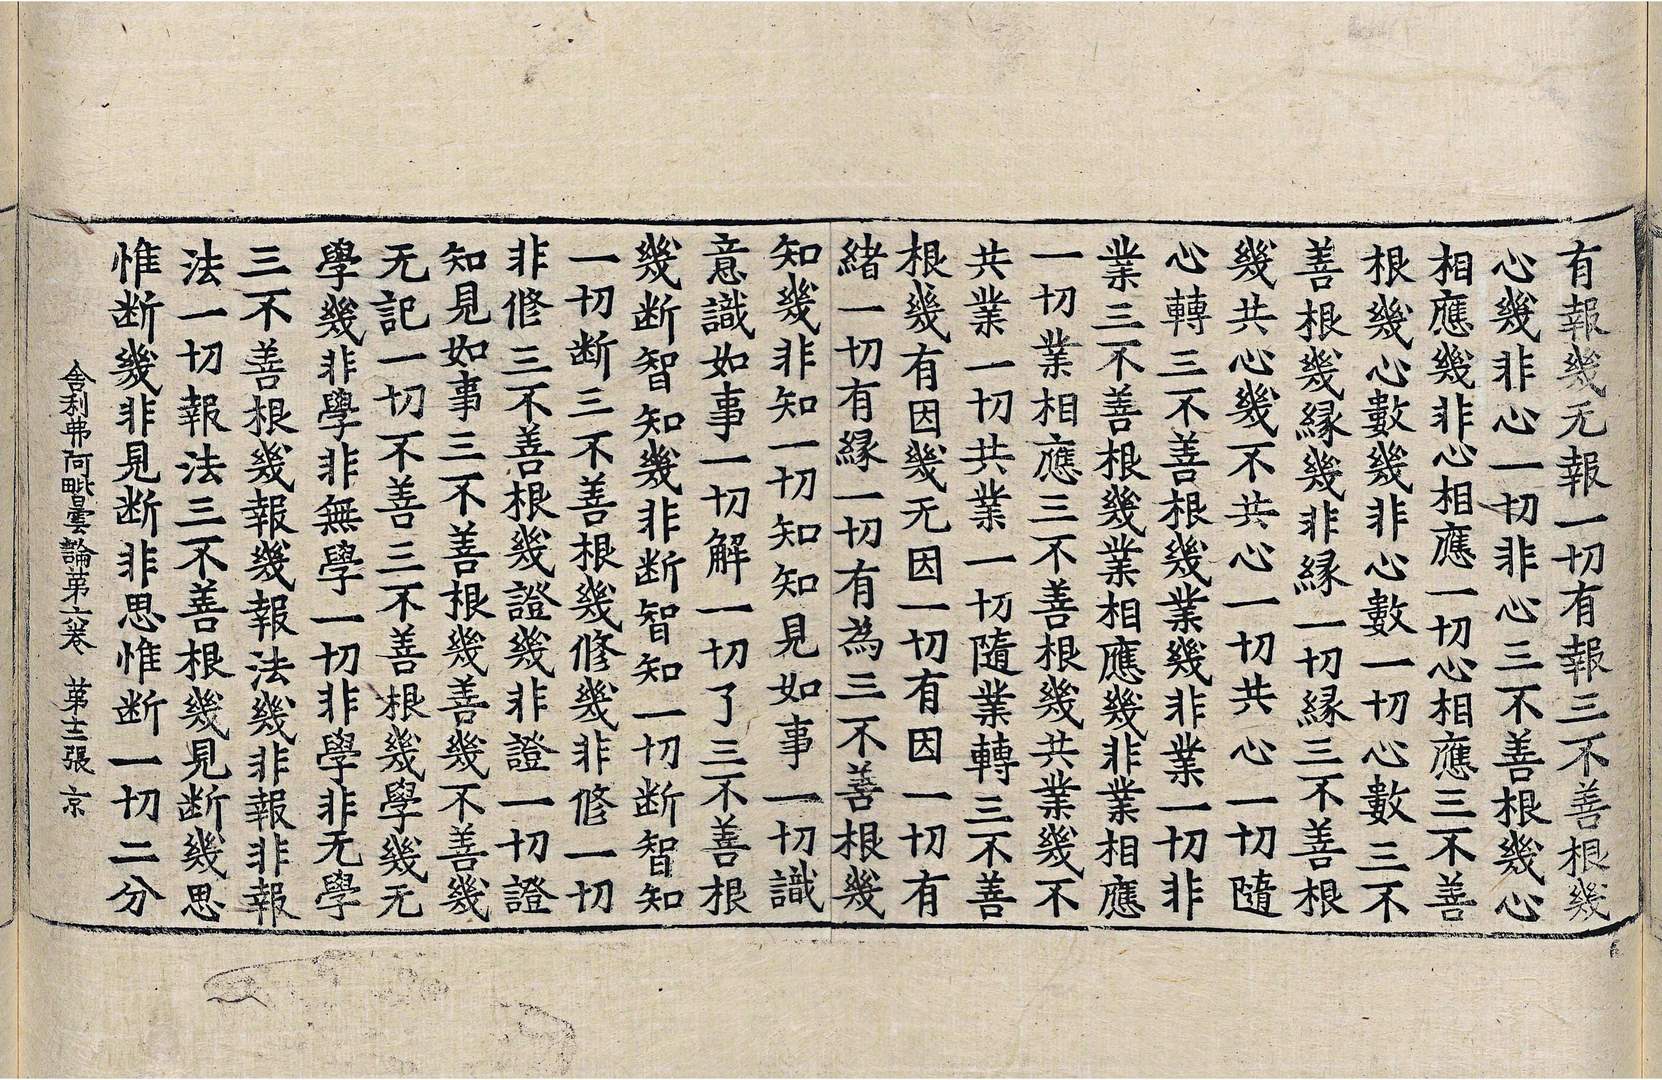 有報幾无報一切有報三不善根幾
心幾非心一切非心三不善根幾心
相應幾非心相應一切心相應三不善
根幾心數幾非心數一切心數三不
善根幾縁幾非縁一切縁三不善根
幾共心幾不共心一切共心一切隨
心轉三不善根幾業幾非業一切非
業三不善根幾業相應幾非業相應
一切業相應三不善根幾共業幾不
共業一切共業一切隨業轉三不善
根幾有因幾无因一切有因一切有
緒一切有縁一切有為三不善根幾
知幾非知一切知知見如事一切識
意識如事一切解一切了三不善根
幾断智知幾非断智知一切断智知
一切断三不善根幾修幾非修一切
非修三不善根幾證幾非證一切證
知見如事三不善根幾善幾不善幾
无記一切不善三不善根幾學幾无
學幾非學非無學一切非學非无學
三不善根幾報幾報法幾非報非報
法一切報法三不善根幾見断幾思
惟断幾非見断非思惟断一切二分
舍利弗阿毗曇論第六卷 第十三張 京